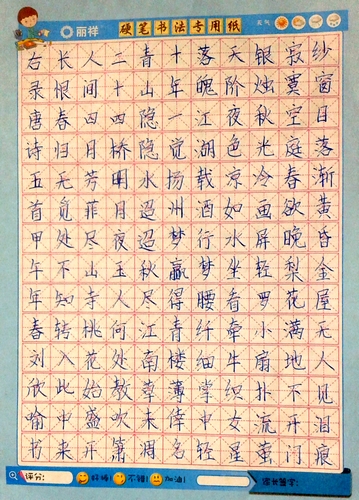 丽祥
硬笔书法专用纸
天气
纱窗日落渐黄昏金屋无人见泪痕
寂寞空庭春欲晚梨花满地不开门
银烛秋光冷画屏轻罗小扇扑流萤
天阶夜色凉如水坐看牵牛织女星
落魄江湖载酒行梦腰纤细掌中轻
十年一觉扬州梦赢得青楼薄倖名
青山隐隐水迢迢秋尽江南草未凋
二十四桥明月夜玉人何处教吹箫
人间四月芳菲尽山寺桃花始盛开
长恨春归无觅处不知转入此中来
右录唐诗五首甲午年春刘欣喻书
评分: 好棒! 不错! 加油! 家长签字: